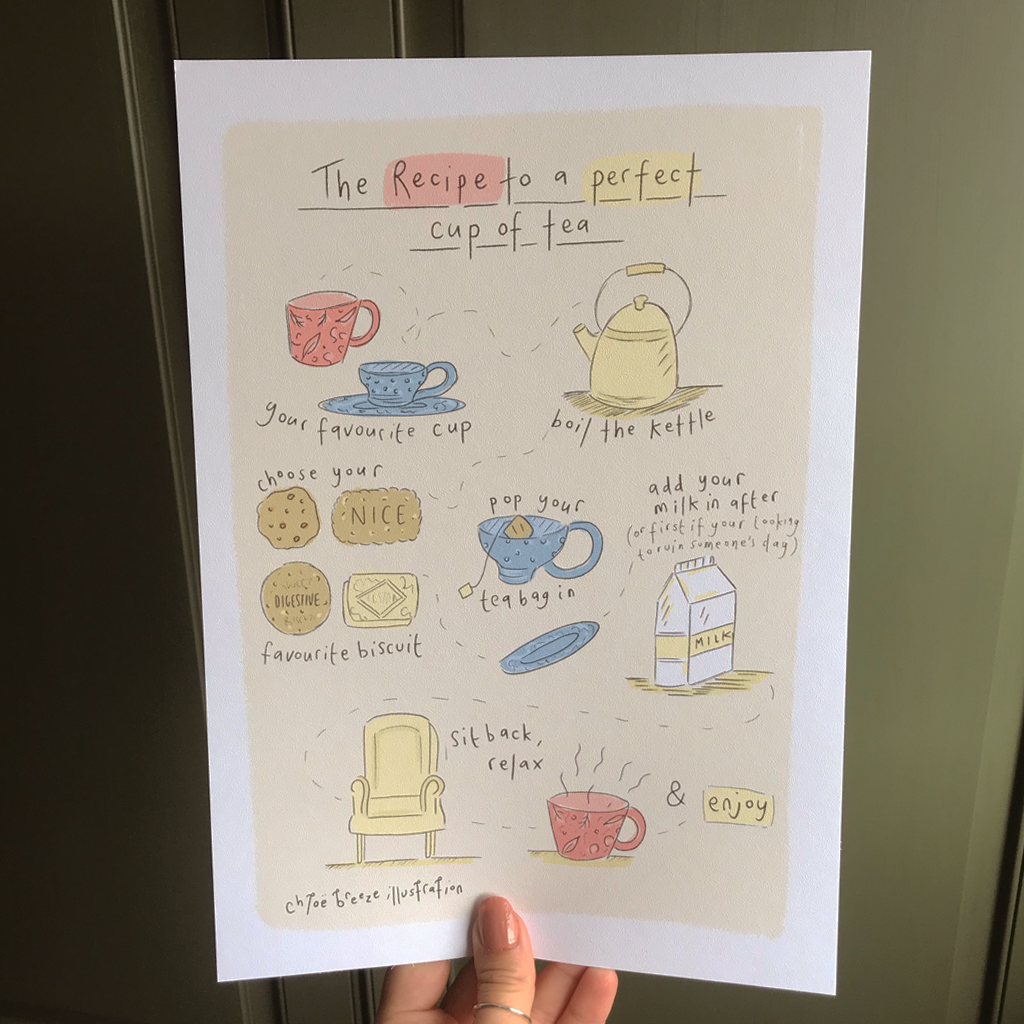 The Recipe to a perfect
cup of tea
your favourite cup
boil the kettle
choose your
NICE
DIGESTIVE
favourite biscuit
pop your
teabag in
add your
milk in after
(or first if your looking
to ruin someone's day)
MILK
sit back,
relax
& enjoy
chloe breeze illustration